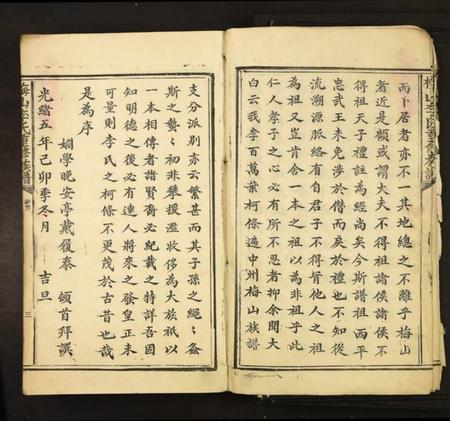 而卜居者亦不一其地總之不離乎梅山
者近是顧或謂大夫不得祖諸侯諸侯不
得祖天子禮註為經尚矣今斯譜祖西平
忠武王未免涉於僭而戾於禮也不知從
流溯源脈絡有自君子不得背他人之祖
為祖又豈肯舍一本之祖以為非祖乎此
仁人孝子之心必有所不忍者抑余聞大
白云我李百萬葉柯條遍中州梅山族譜
支分派別亦云繁甚而其子孫之繩〻螽
斯之蟄〻初非攀援濫收侈為大族祇以
一本相傳者諸賢裔必紀載之特詳吾固
知明德之後必有達人將來之發皇正未
可量則李氏之柯條不更茂於古昔也哉
是為序
姻學晚安亭戴履泰 頓首拜譔
光緒五年己卯季冬月 吉旦
梅山李氏重修族譜
三